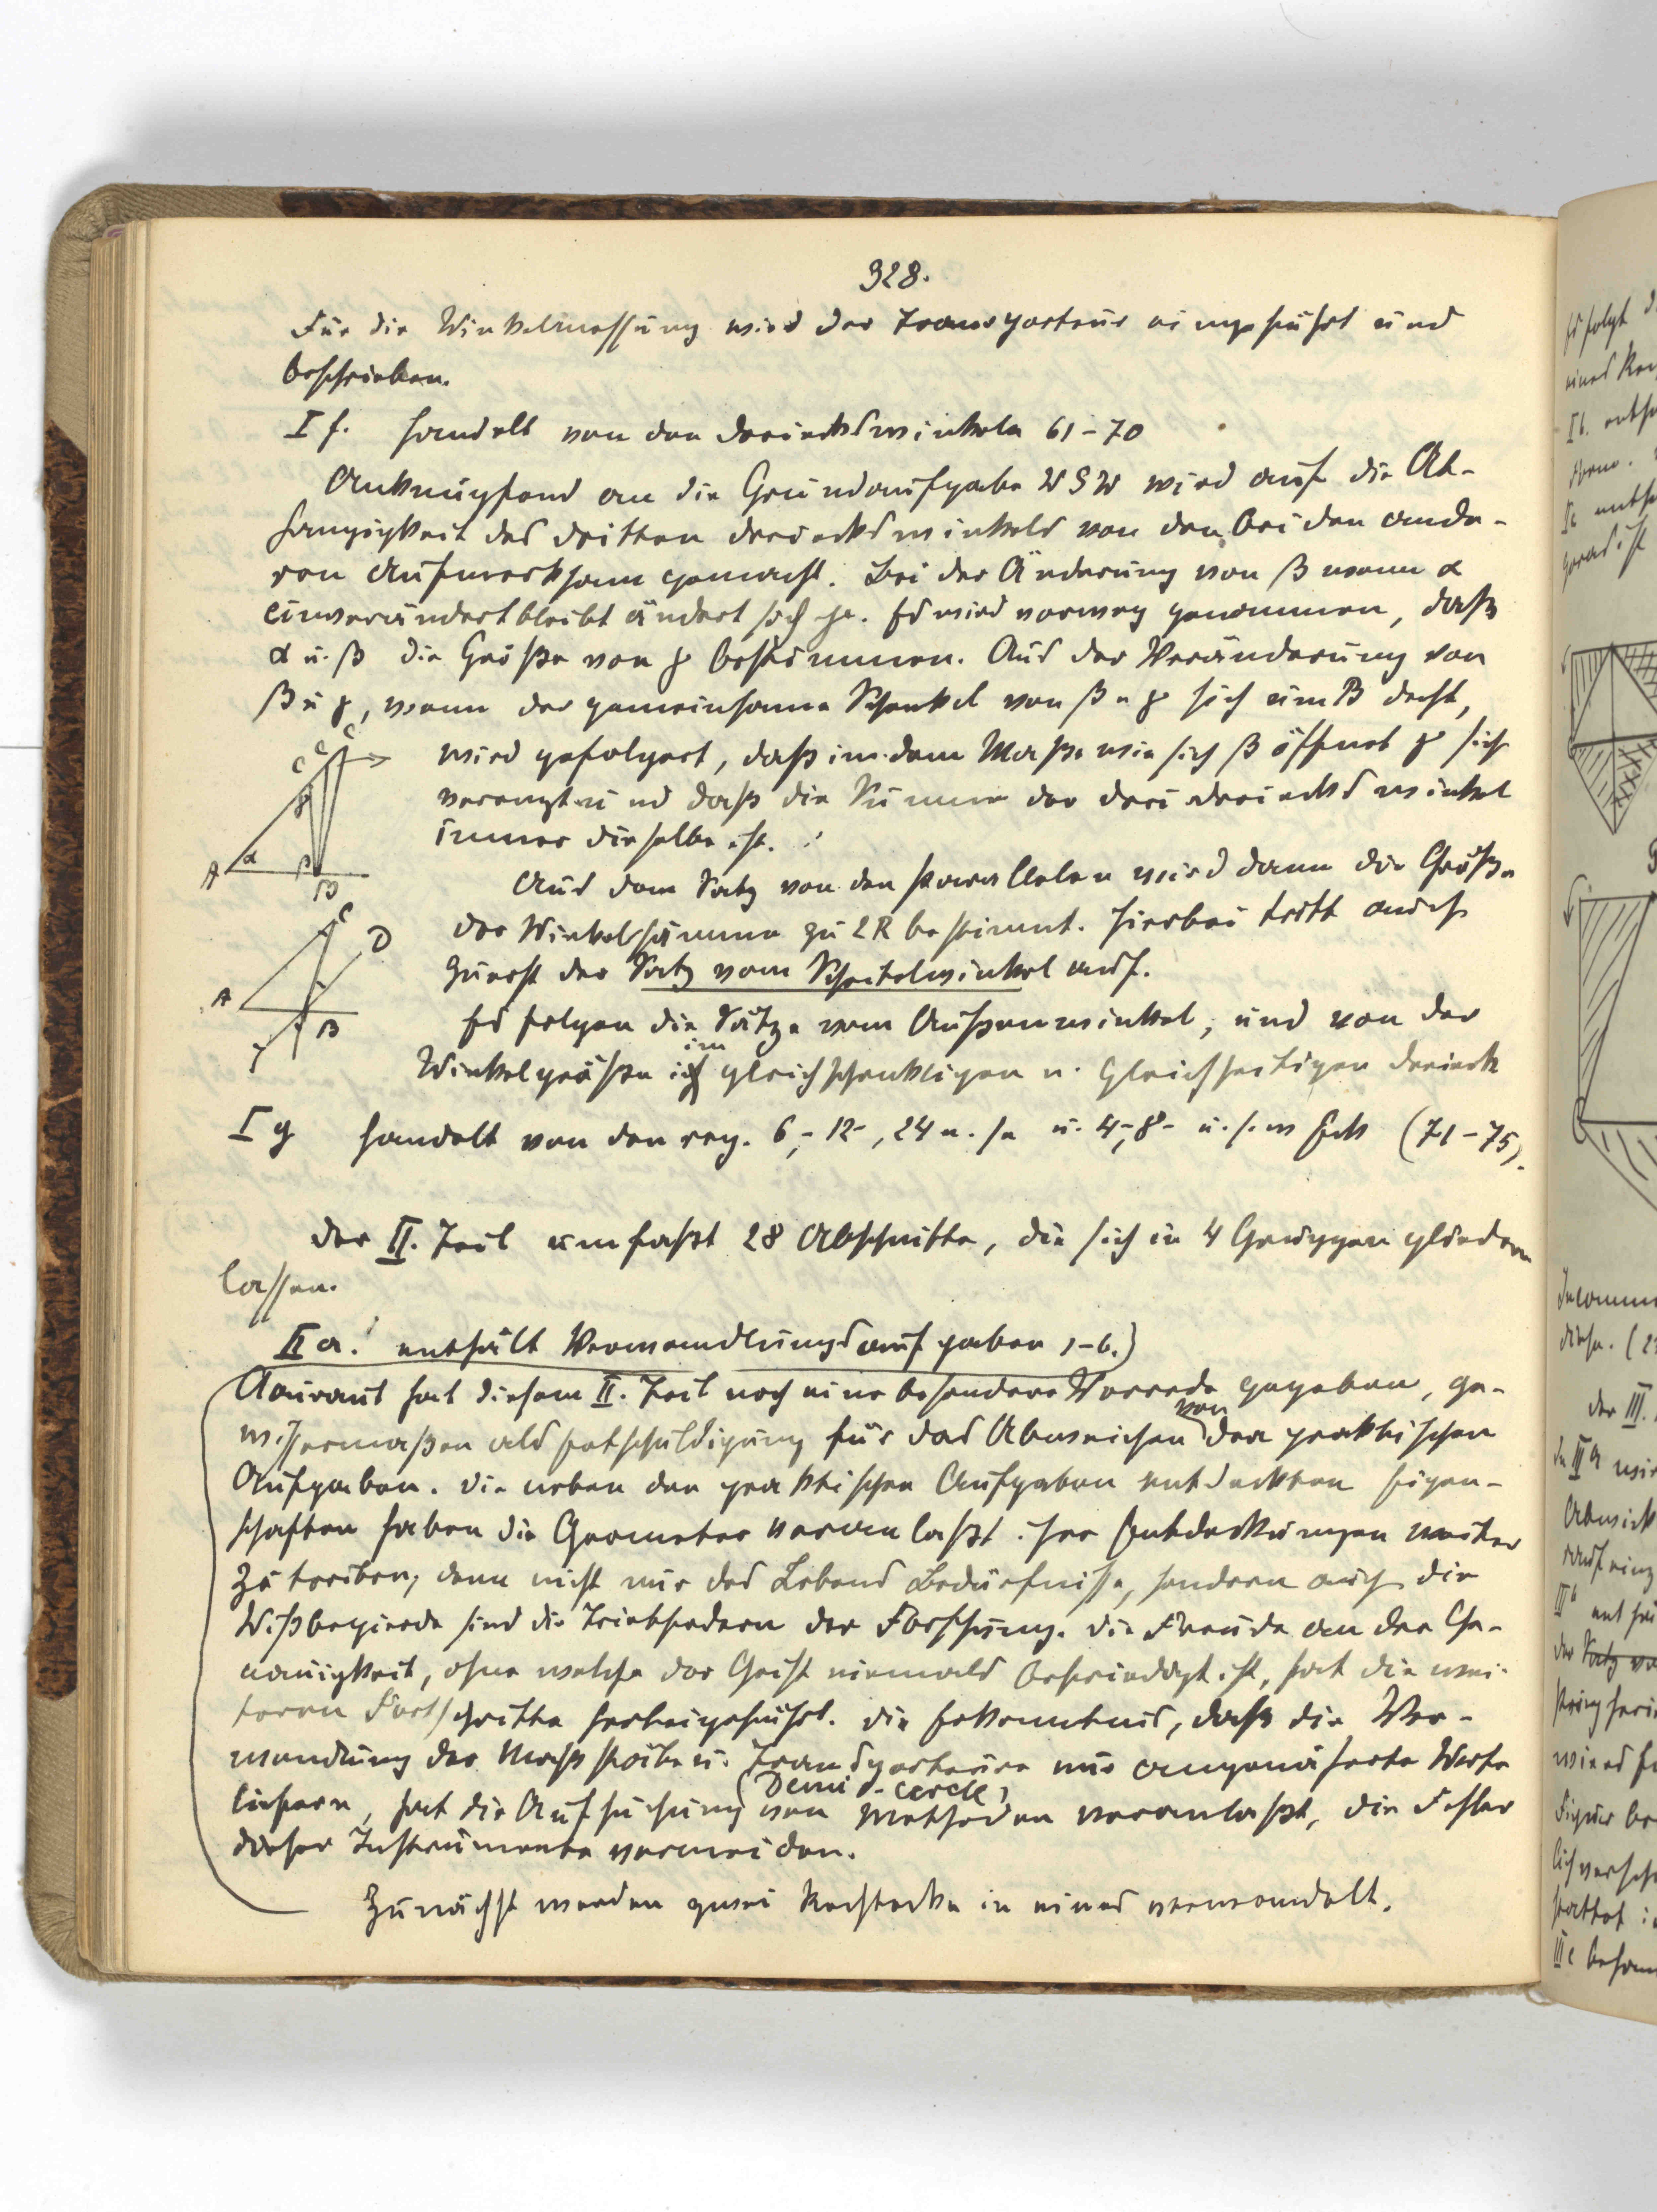 328.
Für die Winkelmessung wird der Transporteur eingeführt und
beschrieben.
I f. handelt von den Dreieckswinkeln 61-70
Anknüpfend an die Grundaufgabe WSW wird auf die Ab-
hängigkeit des dritten Dreieckswinkels von den beiden ande-
ren aufmerksam gemacht. Bei der Änderung von β wenn α
unverändert bleibt ändert sich γ. Es wird vorweg genommen, daß
α u. β die Größe von γ bestimmen. Aus der Veränderung von
β u γ, wenn der gemeinsame Schenkel von β u γ sich um B dreht,
wird gefolgert, daß in dem Maße wie sich β öffnet γ sich
verengt und daß die Summe der drei Dreieckswinkel
immer dieselbe ist.
C C C
γ
A α β
B
Aus dem Satz von den Parallelen wird dann die Größe
der Winkelsumme zu 2R bestimmt. Hierbei tritt auch
zuerst der Satz vom Scheitelwinkel auf.
C
D
A
B
Es folgen die Sätze vom Außenwinkel, und von der
Winkelgröße im gleichschenkligen u. gleichseitigen Dreieck
I g handelt von den reg. 6,- 12-, 24 u. s. u. 4-,8- u. s. w Eck (71-75).
Der II. Teil umfaßt 28 Abschnitte, die sich in 4 Gruppen gliedern
lassen.
II a. enthält Verwandlungsaufgaben 1-6.)
Clairaut hat diesem II. Teil noch eine besondere Vorrede gegeben, ge-
wissermaßen als Entschuldigung für das Abweichen von den praktischen
Aufgaben. Die neben den praktischen Aufgaben entdeckten Eigen-
schaften haben die Geometer veranlaßt ihre Entdeckungen weiter
zu treiben, denn nicht nur des Lebens Bedürfnisse, sondern auch die
Wißbegierde sind die Triebfedern der Forschung. Die Freude an der Ge-
nauigkeit, ohne welche der Geist niemals befriedigt ist, hat die wei-
teren Fortschritte herbeigeführt. Die Erkenntnis, daß die Ver-
wendung der Maßstäbe u. Transporteure nur angenäherte Werte
(Demi-cercle)
liefern, hat die Aufsuchung von Methoden veranlaßt, die Fehler
dieser Instrumente vermeiden.
Zunächst werden zwei Rechtecke in eines verwandelt.